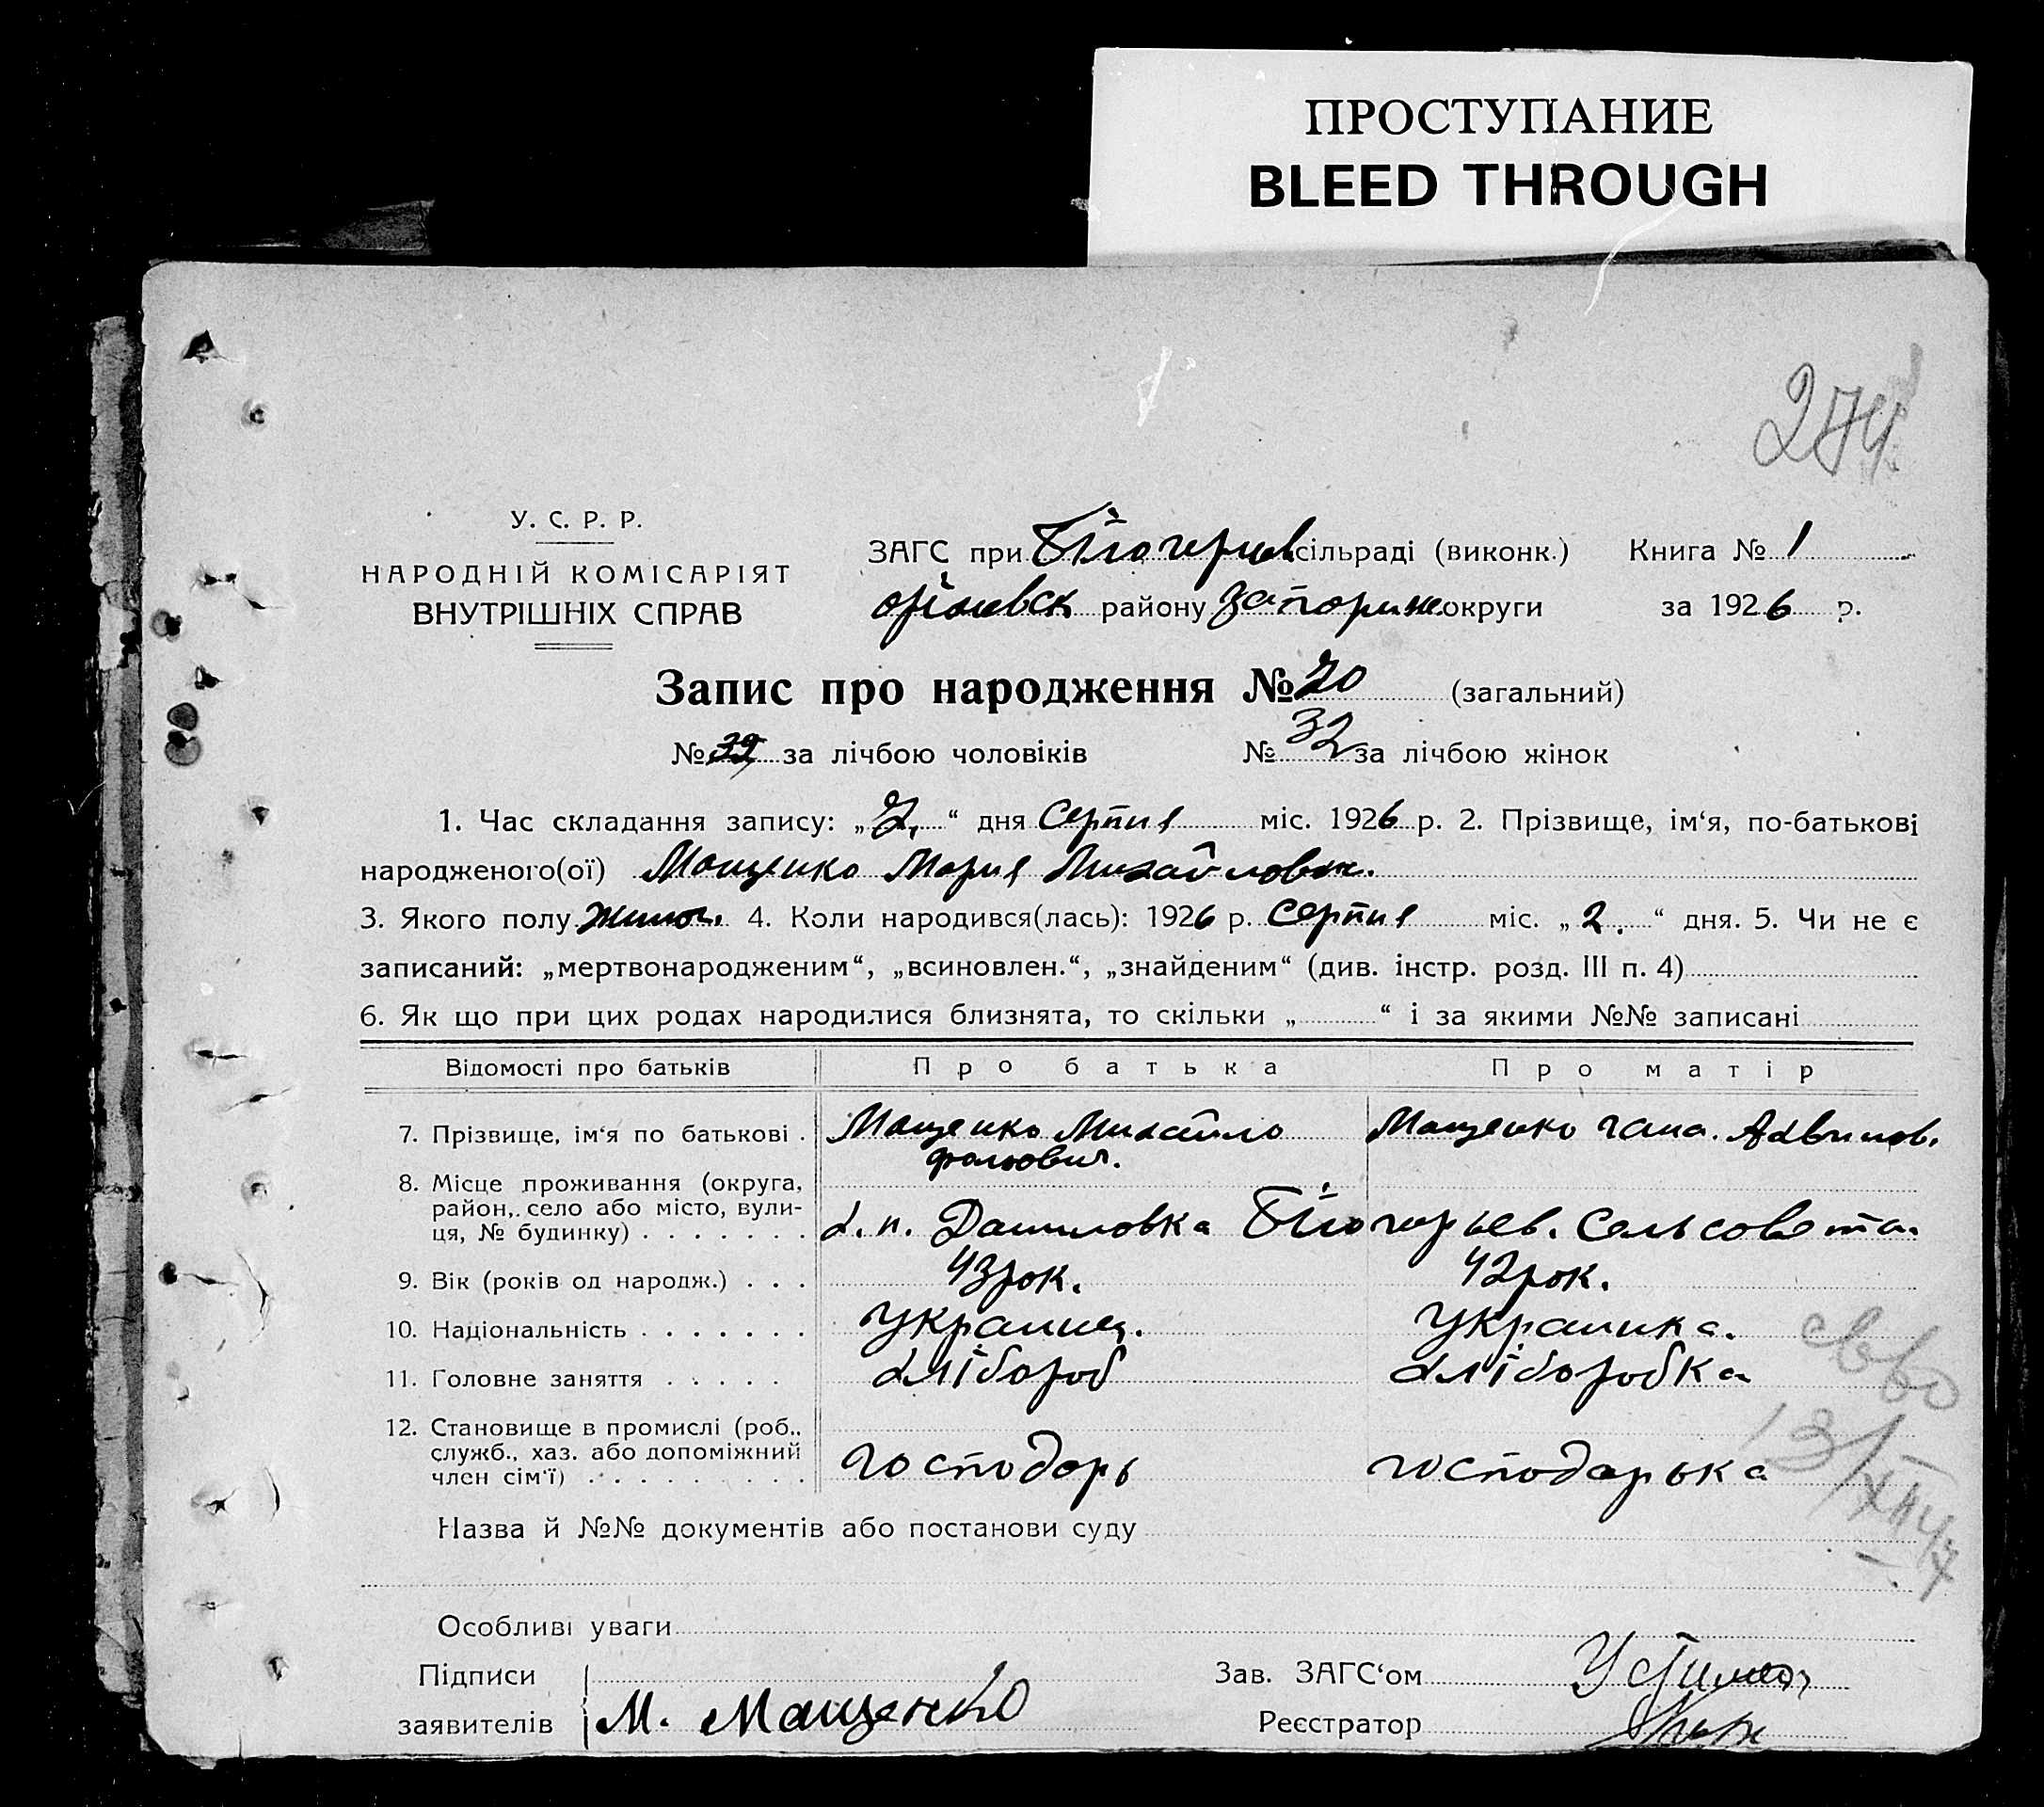 ПРОСТУПАНИЕ
BLEED THROUGH
274
У. С. Р. Р.
НАРОДНІЙ КОМІСАРІЯТ
ВНУТРІШНІХ СПРАВ
ЗАГС при Білогирiв сільраді (виконк.) Книга № 1
оріхівськ району Запориж округи за 1926 р.
Запис про народження № 70 (загальний)
№ за лічбою чоловіків № 32 за лічбою жінок
1. Час складання запису: „ 7. “ дня Серпня міс. 1926 р. 2. Прізвище, ім‘я, по-батькові
народженого(ої) Мощенко Мария Михайловн.
3. Якого полу Жиноч. 4. Коли народився(лась): 1926 р. Серпня міс. „ 2. “ дня. 5. Чи не є
записаний: „мертвонародженим“, „всиновлен.“, „знайденим“ (див. інстр. розд. III п. 4)
6. Як що при цих родах народилися близнята, то скільки „ “ і за якими №№ записані
Відомості про батьків Про батька Про матір
7. Прізвище, ім‘я по батькові . Мощенко Михайло Мощенко Гана.
8. Місце проживання (округа,
район, село або місто, вули-
ця, № будинку) . . . . . . . х. п. Даниловка Білогирьев. Сельсовета.
9. Вік (років од народж.) . . . 43 рок. 42 рок.
10. Національність . . . . . . . украинец. украинка.
11. Головне заняття . . . . . хлібороб хліборобка
12. Становище в промислі (роб.,
служб., хаз. або допоміжний
член сім‘ї) . . . . . . . . . господарь господарька
сввo
13/XII 47
Назва й №№ документів або постанови суду
Особливі уваги
Підписи
заявителів М. Мащенко
Зав. ЗАГС‘ом
Реєстратор